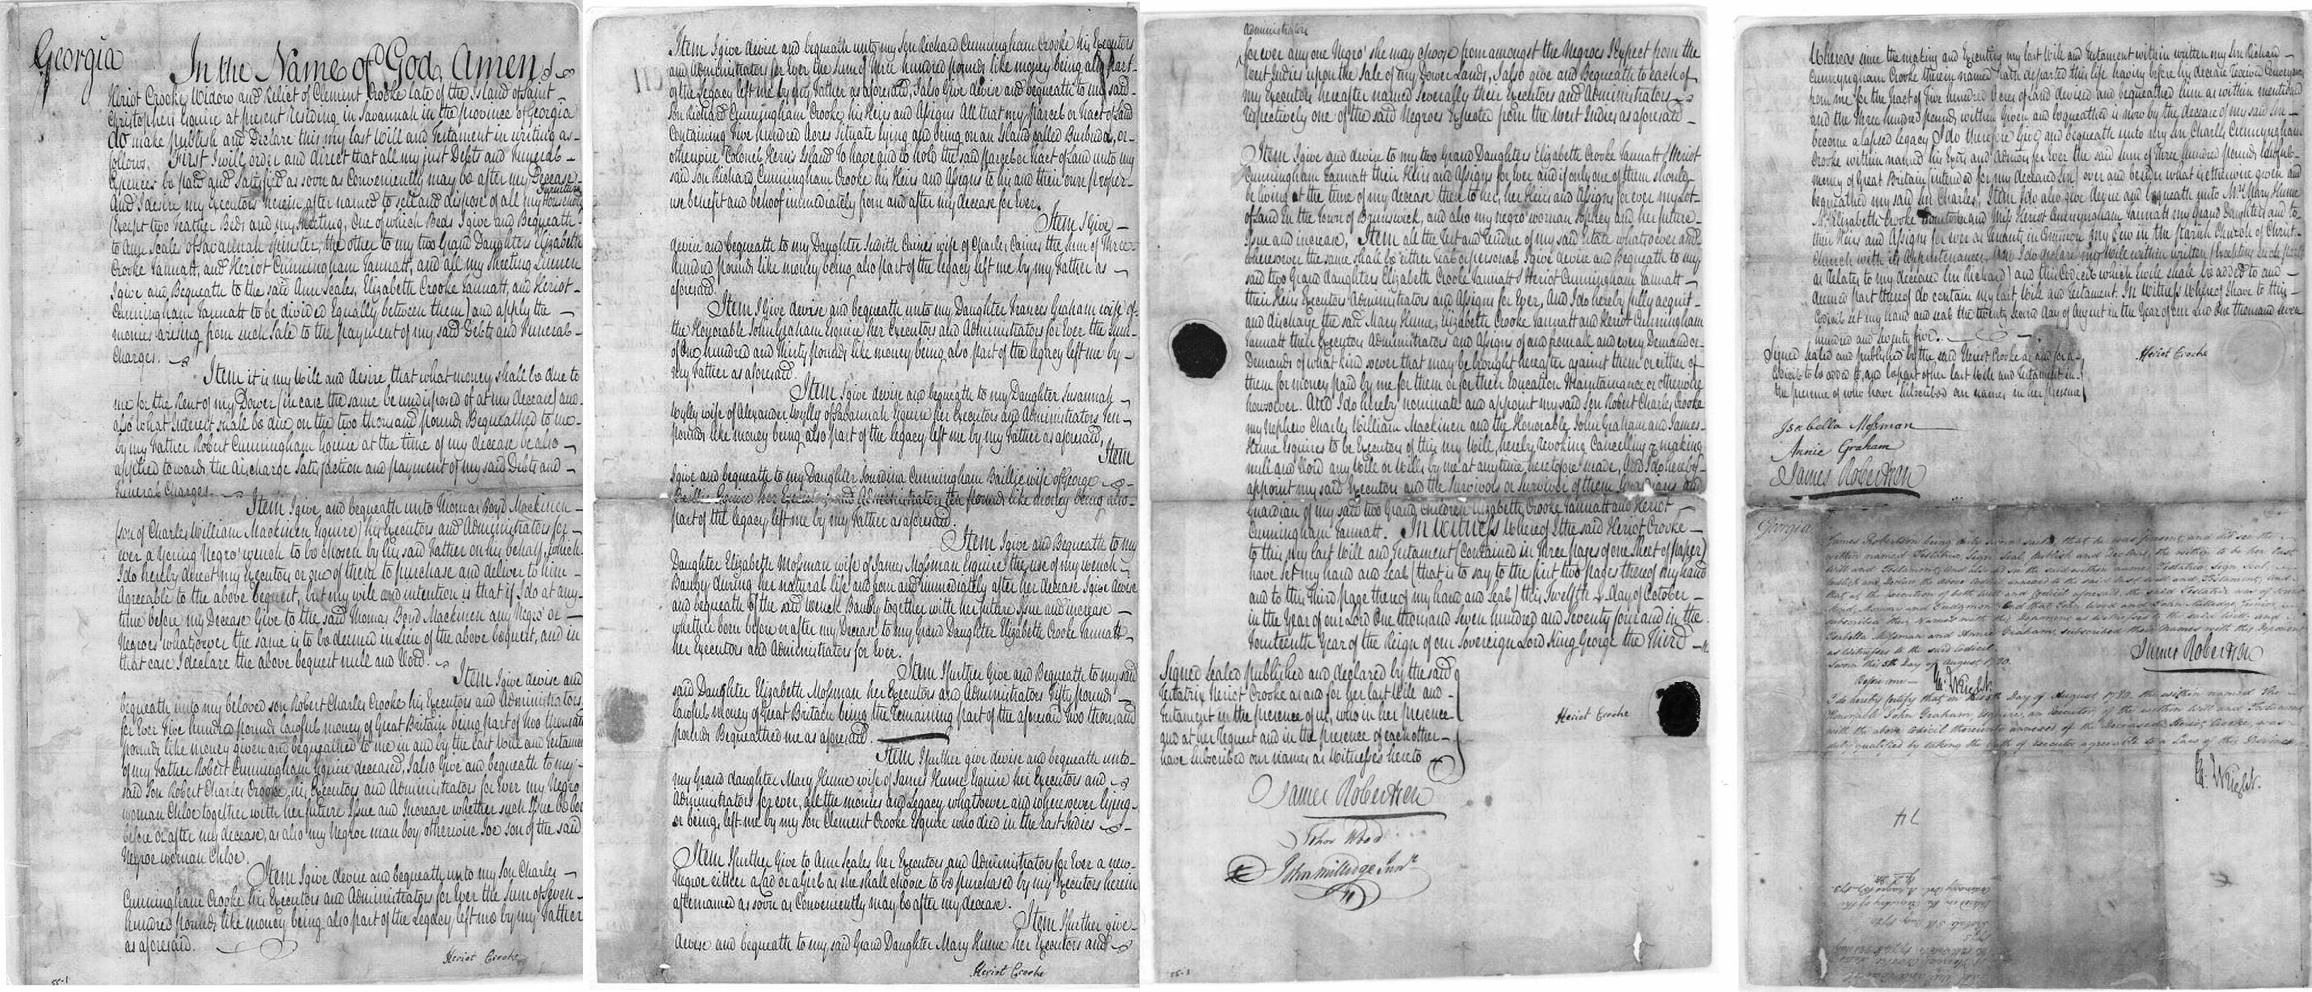 Georgia
In the Name of God, Amen I
Heriot Crooke Widow and Relict of Clement Crooke late of the Island of Saint
Christophers Esquire at present residing in Savannah in the province of Georgia
do make publish and Declare this my last Will and Testament in writing as
follows. First I will order and direct that all my just Debts and Funeral
Expences be paid and Satisfied as soon as Conveniently may be after my Decease
And I desire my Executors herein after named to sell and dispose of all my Household Furniture
Except two Feather Beds and my Sheeting, One of which Beds I give and Bequeath
to Ann Scales of Savannah Spinster, the other to my two Grand Daughters Elizabeth
Crooke Tannatt, and Heriot Cunningham Tannatt, and all my Sheeting Linnen
I give and Bequeath to the said Ann Scales, Elizabeth Crooke Tannatt, and Heriot
Cunningham Tannatt to be divided Equally between them) and apply the
monies arising from such Sale to the payment of my said Debts and Funeral
Charges.
Item it is my Will and desire that what money shall be due to
me for the Rent of my Dower (in case the same be undisposed of at my decease) and
also what Interest shall be due on the two thousand pounds Bequeathed to me
by my Father Robert Cunningham Esquire at the time of my decease be also
applied towards the discharge Satisfaction and payment of my said Debts and
Funeral Charges.
Item I give and bequeath unto Thomas Boyd Mackinen
(son of Charles William Mackinen Esquire) his Executors and Administrators for
ever a Young Negro wench to be chosen by his said Father on his behalf, which
I do hereby direct my Executors or one of them to purchase and deliver to him
Agreeable to the above Bequest, but my will and intention is that if I do at any
time before my Decease Give to the said Thomas Boyd Mackinen any Negro or
Negroes whatsoever the same is to be deemed in Lieu of the above bequest, and in
that case I declare the above bequest null and Void.
Item I give devise and
bequeath unto my beloved son Robert Charles Crooke his Executors and Administrators
for Ever Five hundred pounds lawful money of Great Britain being part of two thousand
pounds like money given and bequeathed to me in and by the last Will and Testament
of my Father Robert Cunningham Esquire deceased, I also Give and bequeath to my
said Son Robert Charles Crooke, his Executors and Administrators for Ever my Negro
woman Chloe together with her future Issue and Increase whether such Issue be born
before or after my decease, as also my Negroe man boy otherwise Joe son of the said
Negroe woman Chloe.
Item I give devise and bequeath unto my Son Charles
Cunningham Crooke his Executors and Administrators for Ever the sum of Seven
hundred pounds like money being also part of the Legacy left me by my Father
as aforesaid.
Heriot Crooke
Item I give devise and bequeath unto my son Richard Cunningham Crooke his Executors
and Administrators for Ever the sum of three hundred pounds like money being also part
of the Legacy left me by my Father as aforesaid, I also Give devise and bequeath to my said
Son Richard Cunningham Crooke his Heirs and Assigns All that my parcel or Tract of Land
Containing Five hundred Acres Situate lying and being on an Island called Busbudas, or
otherwise Colonel Kern's Island To have and to hold the said parcel or Tract of Land unto my
said son Richard Cunningham Crooke his Heirs and Assigns to his and their own proper
use benefit and behoof immediately from and after my decease for Ever.
Item I Give
devise and bequeath to my Daughter Judith Caines wife of Charles Caines the sum of Three
hundred pounds like money being also part of the legacy left me by my Father as
aforesaid.
Item I Give devise and bequeath unto my Daughter Frances Graham wife of
the Honorable John Graham Esquire her Executors and Administrators for Ever the sum
of One hundred and Thirty pounds like money being also part of the legacy left me by
my Father as aforesaid.
Item I give devise and bequeath to my Daughter Susannah
Wylly wife of Alexander Wylly of Savannah Esquire her Executors and Administrators Ten
pounds like money being also part of the legacy left me by my Father as aforesaid,
Item
I give and bequeath to my Daughter Lourdina Cunningham Baillie wife of George
Baillie Esquire her Executors and Administrators Ten pounds like money being also
part of the legacy left me by my Father as aforesaid.
Item I give and Bequeath to my
Daughter Elizabeth Mossman wife of James Mossman Esquire the use of my wench
Bauby during her natural life and from and immediately after her decease I give devise
and bequeath the said wench Bauby together with her future Issue and increase
whether born before or after my Decease to my Grand Daughter Elizabeth Crooke Tannatt
her Executors and Administrators for Ever.
Item I further Give and Bequeath to my said
said Daughter Elizabeth Mossman her Executors and Administrators Fifty pounds
lawful money of Great Britain being the Remaining part of the aforesaid two thousand
pounds Bequeathed me as aforesaid.
Item I further give devise and bequeath unto
my Grand daughter Mary Hume wife of James Hume Esquire her Executors and
Administrators for ever, all the monies and Legacy whatsoever and wheresoever lying
or being, left me by my son Clement Crooke Esquire who died in the East Indies
Item I further Give to Ann Scales her Executors and Administrators for Ever a new
Negroe either a Lad or a Girl as she shall choose to be purchased by my Executors herein
aftername as soon as Conveniently may be after my decease.
Item I further give
devise and bequeath to my said Grand Daughter Mary Hume her Executors and
Heriot Crooke
Administrators
for ever any one Negro she may choose from amongst the Negroes I expect from the
West Indies upon the Sale of my Dower Lands, I also give and Bequeath to each of
my Executors hereafter named severally their Executors and Administrators
respectively one of the said Negroes Expected from the West Indies as aforesaid
Item I give and devise to my two Grand Daughters Elizabeth Crooke Tannatt & Heriot
Cunningham Tannatt their Heirs and Assigns for ever and if only one of them should
be living at the time of my decease then to her, her Heirs and Assigns for ever my Lot
of Land in the Town of Brunswick, and also my negro woman Sophey and her future
Issue and increase, Item all the rest and residue of my said Estate whatsoever and
wheresoever the same shall be either real or personal I give devise and Bequeath to my
said two Grand daughters Elizabeth Crooke Tannatt & Heriot Cunningham Tannatt
their Heirs Executors Administrators and Assigns for Ever, And I do hereby fully acquit
and discharge the said Mary Hume, Elizabeth Crooke Tannatt and Heriot Cunningham
Tannatt their Executors Administrators and Assigns of and from all and every Demand or
Demands of what kind soever that may be brought hereafter against them or either of
them for money paid by me for them or for their Education Maintainance or otherwise
howsoever. And I do hereby nominate and appoint my said Son Robert Charles Crooke
my Nephew Charles William Mackinen and the Honorable John Graham and James
Hume Esquires to be Executors of this my Will, hereby revoking Cancelling & making
null and Void any Will or Wills by me at any time heretofore made, And I do hereby
appoint my said Executors and the Survivors or Survivor of them Guardians and
Guardian of my said two Grand Children Elizabeth Crooke Tannatt and Heriot
Cunningham Tannatt. In Witness Whereof I the said Heriot Crooke
to this my last Will and Testament (Contained in three pages of one Sheet of paper)
have set my hand and Seal (that is to say to the first two pages thereof my hand
and to this Third page thereof my hand and Seal) this Twelfth Day of October
in the Year of our Lord One thousand Seven hundred and Seventy four and in the
Fourteenth Year of the Reign of our Sovereign Lord King George the Third
Signed Sealed published and declared by the said
Testatrix Heriot Crooke as and for her last Will and
Testament in the presence of us, who in her presence
and at her request and in the presence of each other
have subscribed our names as Witnesses hereto
Heriot Crooke
James Robertson
John Wood
John Milledge Junr
Whereas since the making and Executing my last Will and Testament within written my son Richard
Cunnyngham Crooke therein named hath departed this life having before his decease received
from me for the Tract of Five hundred Acres of Land devised and bequeathed him as within mentioned
and the Three hundred pounds within Given and bequeathed is now by the decease of my said son
become a lapsed legacy I do therefore Give and bequeath unto my son Charles Cunnyngham
Crooke within named his Executors and Admors for ever the said sum of Three hundred pounds lawful
money of Great Britain (intended for my deceased son) over and beyond what is therein given and
bequeathed my said son Charles. Item I do also give devise and bequeath unto Mrs Mary Hume
Ms Elizabeth Crooke Tannatt and Miss Heriot Cunnyngham Tannatt my Grand Daughters and to
their Heirs and Assigns for ever as Tenants in Common my Pew in the Parish Church of Christ
Church with its Appurtenances, And I do declare my Will within written (Excepting such part
as relates to my deceased Son Richard) and this Codicil which I will shall be added to and
deemed part thereof do contain my last Will and Testament. In Witness Whereof I have to this
Codicil set my hand and seal the twenty second day of August in the Year of our Lord One thousand seven
hundred and seventy five.
Signed Sealed and published by the said Heriot Crooke as and for a
Codicil to be added to and as part of her last Will and Testament in
the presence of who have subscribed our names in her presence
Heriot Crooke
Isabella Mossman
Annie Graham
James Robertson
Georgia
James Robertson being duly sworn saith that he was present and did see the
within named Testatrix Sign Seal Publish and Declare the within to be her last
Will and Testament, and also did see the said within named Testatrix Sign Seal,
Publish and Declare the above Codicil annexed to the said last Will and Testament, and
that at the execution of both Will and Codicil aforesaid the said Testatrix was of sound
Mind, Memory and Judgment And that John Wood and John Milledge Junior
subscribed their Names with this Deponent as Witnesses to the said Will and
Isabella Mossman and Annie Graham subscribed their Names with this Deponent
as Witnesses to the said Codicil
Sworn this 5th Day of August 1780.
Before me
James Robertson
Ja. Wright
I do hereby Certify that on this 5th Day of August 1780 the within named the
Honorable John Graham Esquire, an Executor of the within Will and Testament
with the above Codicil thereunto annexed of the Deceased Heriot Crooke, was
duly qualified by taking the Oath of Executor agreeable to a Law of this Province
Ja. Wright
74